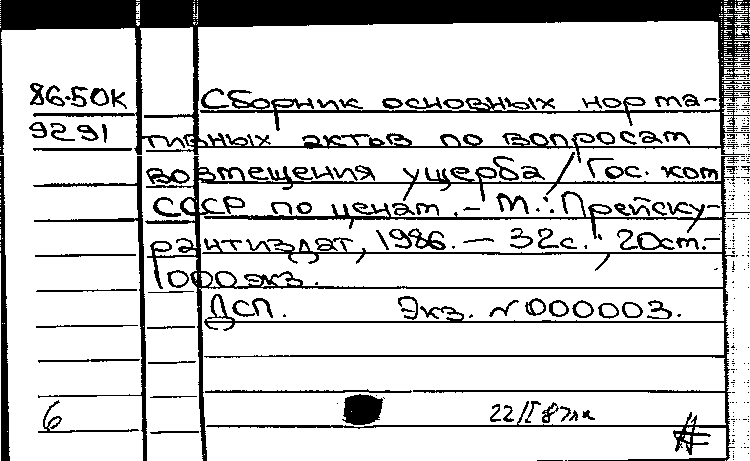 86-50К Сборник основных норма-
9291 тивных актов по вопросам
возмещения ущерба / Гос. ком
СССР по ценам. - М.: Прейску-
рантиздат, 1986. - 32с.; 20см.-
1000экз.
ДСП. Экз. №000003.
6 22/I 87